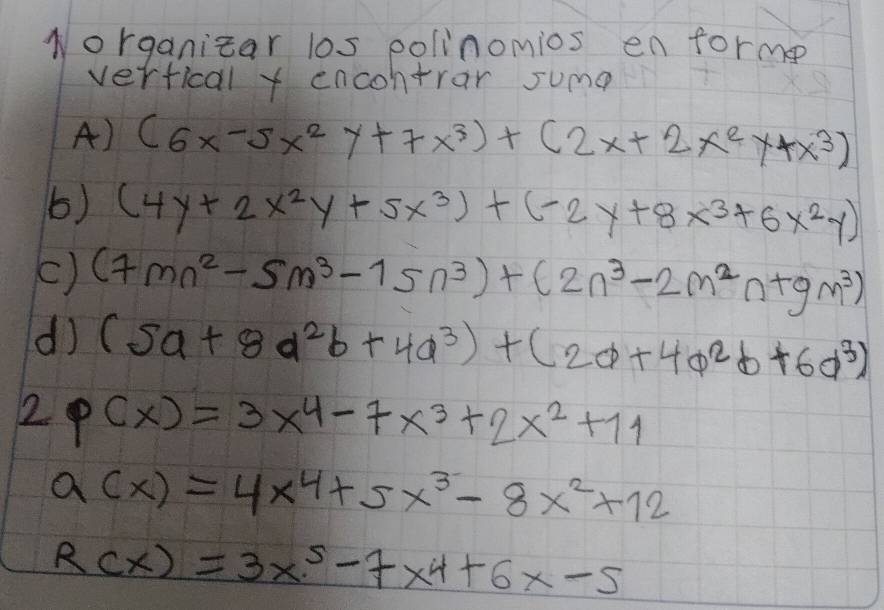 1 organizar los polinomios en forma
vertical y encontrar suma
A) (6x-5x² y+7x³)+(2x+2x² y+x³)
b) (4y+2x²y+5x³)+(-2y+8x³+6x²y)
c) (7mn²-5m³-15n³)+(2n³-2m²n+9m³)
d) (5a+8a²b+4a³)+(2a+4a²b+6a³)
2 p(x)=3x⁴-7x³+2x²+11
Q(x)=4x⁴+5x³-8x²+12
R(x)=3x.⁵-7x⁴+6x-5